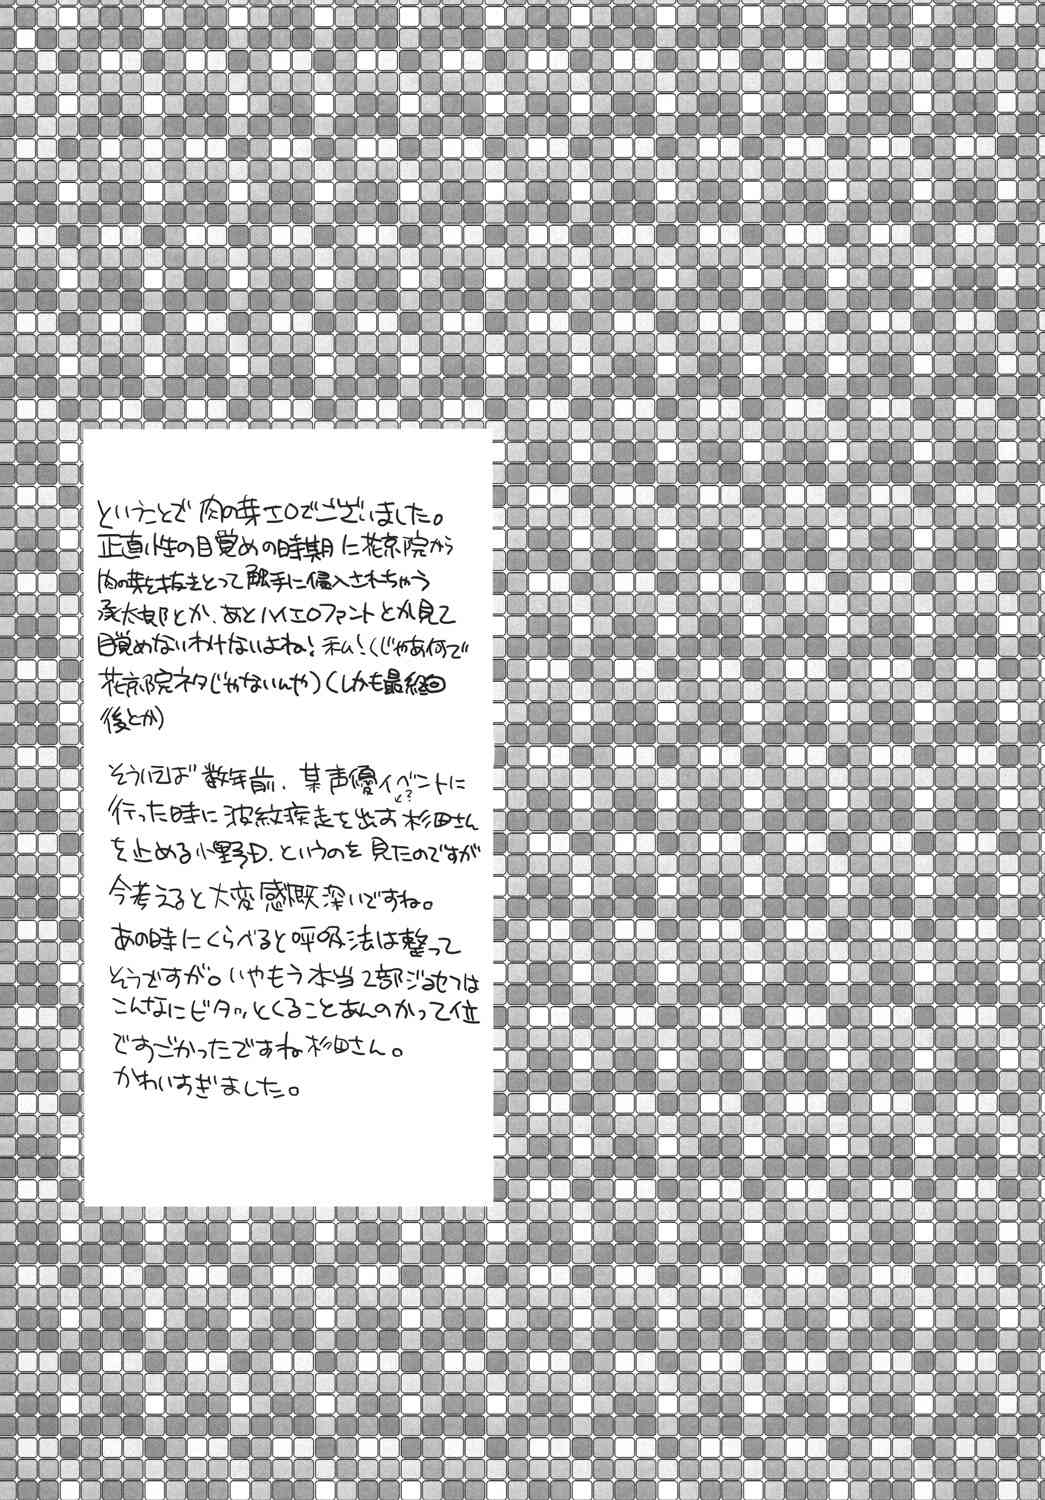 ということで 肉の芽エロでございました。
正直小生の目覚めの時期に花京院から
肉の芽を抜きとって触手に侵入されちゃう
承太郎とか、あとハイエロファントとか見て
目覚めないわけないよね！私！（じゃあ何で
花京院ネタじゃないんや）（しかも最終回
後とか）
そういえば 数年前、某声優イベントに
行った時に 波紋疾走を出す杉田さん
を止める小野D、というのを見たのですが
今考えると大変感慨深いですね。
あの時にくらべると呼吸法は整って
そうですが。いやもう本当2部ジョセフは
こんなにビタッとくることあんのかって位
ですごかったですね杉田さん。
かわいすぎました。